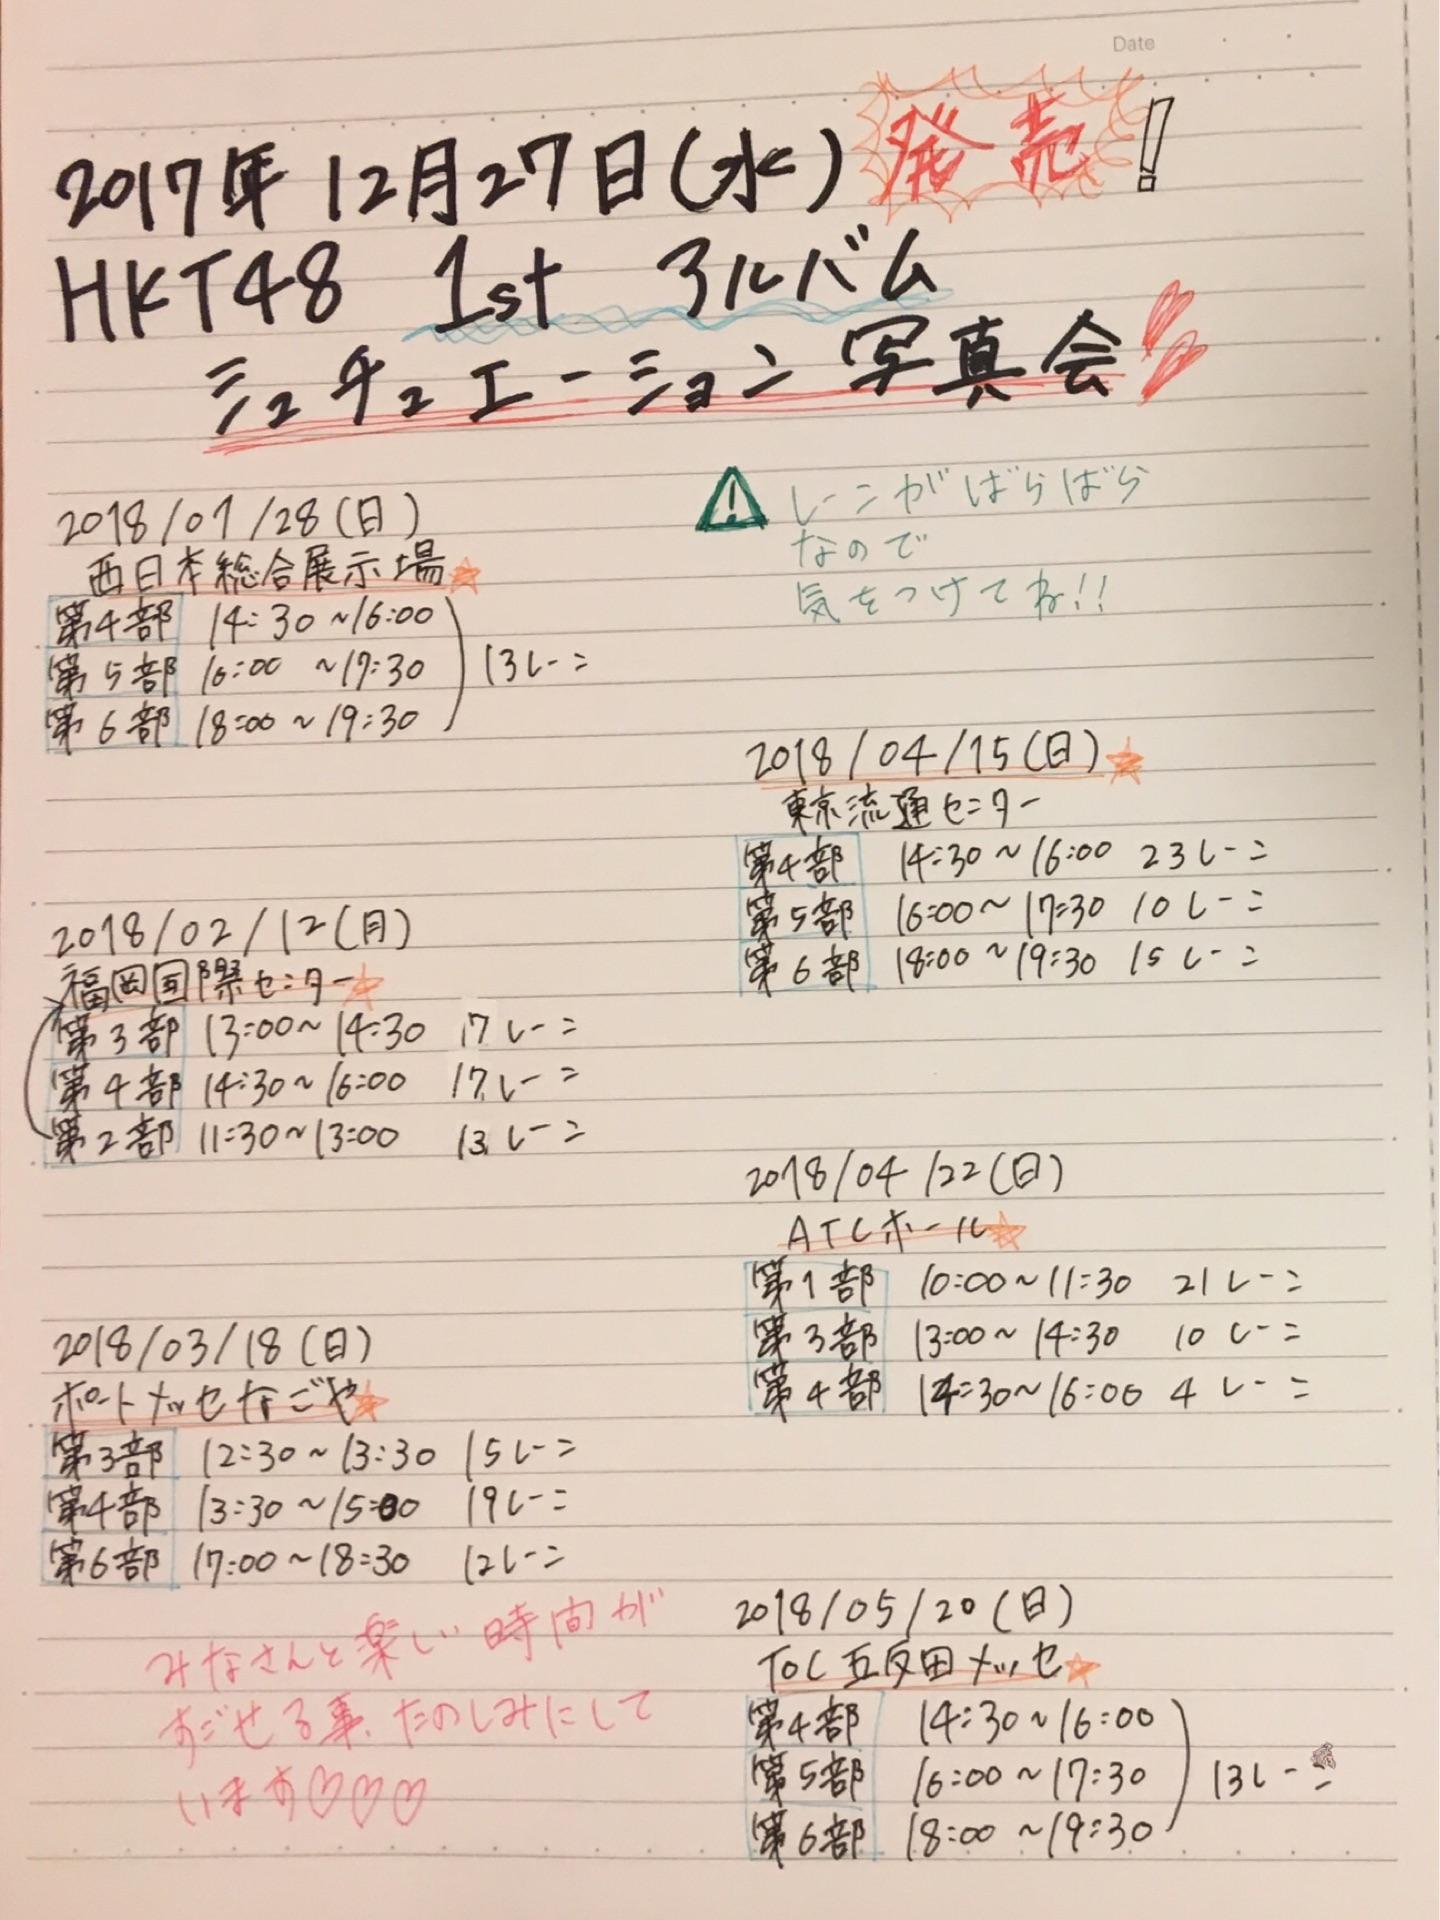 Date
2017年12月27日(水)発売!
HKT48 1st アルバム
シュチュエーション写真会!!
2018/01/28(日)
西日本総合展示場
第4部 14:30~16:00
第5部 16:00 ~17:30
第6部 18:00~19:30
13レーン
2018/02/12(月)
福岡国際センター
第3部 13:00~14:30 17レーン
第4部 14:30~16:00 17レーン
第2部 11:30~13:00 13レーン
2018/03/18(日)
ポートメッセなごや
第3部 12:30~13:30 15レーン
第4部 13:30~15:00 19レーン
第6部 17:00~18:30 12レーン
みなさんと楽しい時間が
すごせる事、たのしみにして
います♡♡♡
レーンがばらばら
なので
気をつけてね!!
2018/04/15(日)
東京流通センター
第4部 14:30~16:00 23レーン
第5部 16:00~17:30 10レーン
第6部 18:00~19:30 15レーン
2018/04/22(日)
ATCホール
第1部 10:00~11:30 21レーン
第3部 13:00~14:30 10レーン
第4部 14:30~16:00 4レーン
2018/05/20(日)
TOC五反田メッセ
第4部 14:30~16:00
第5部 16:00~17:30
第6部 18:00~19:30
13レーン